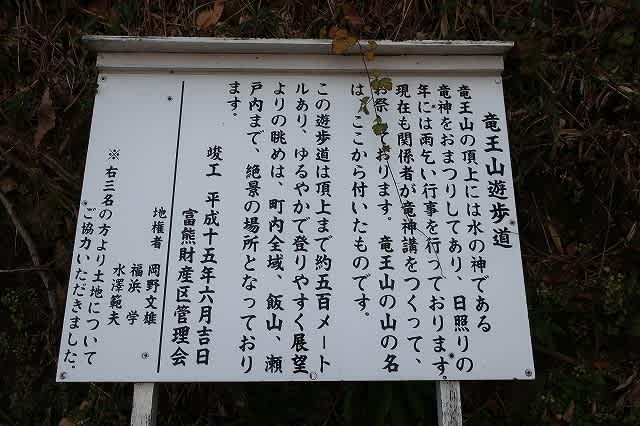 竜王山遊歩道
竜王山の頂上には水の神である
竜神をおまつりしてあり、日照りの
年には雨乞い行事を行っております。
現在も関係者が竜神講をつくって、
お祭りしております。竜王山の山の名
は、ここから付いたものです。
この遊歩道は頂上まで約五百メート
ルあり、ゆるやかで登りやすく展望
よりの眺めは、町内全域、飯山、瀬
戸内まで、絶景の場所となっており
ます。
竣工 平成十五年六月吉日
富熊財産区管理会
地権者 岡野文雄
福浜 学
水澤範夫
※ 右三名の方より土地について
ご協力いただきました。